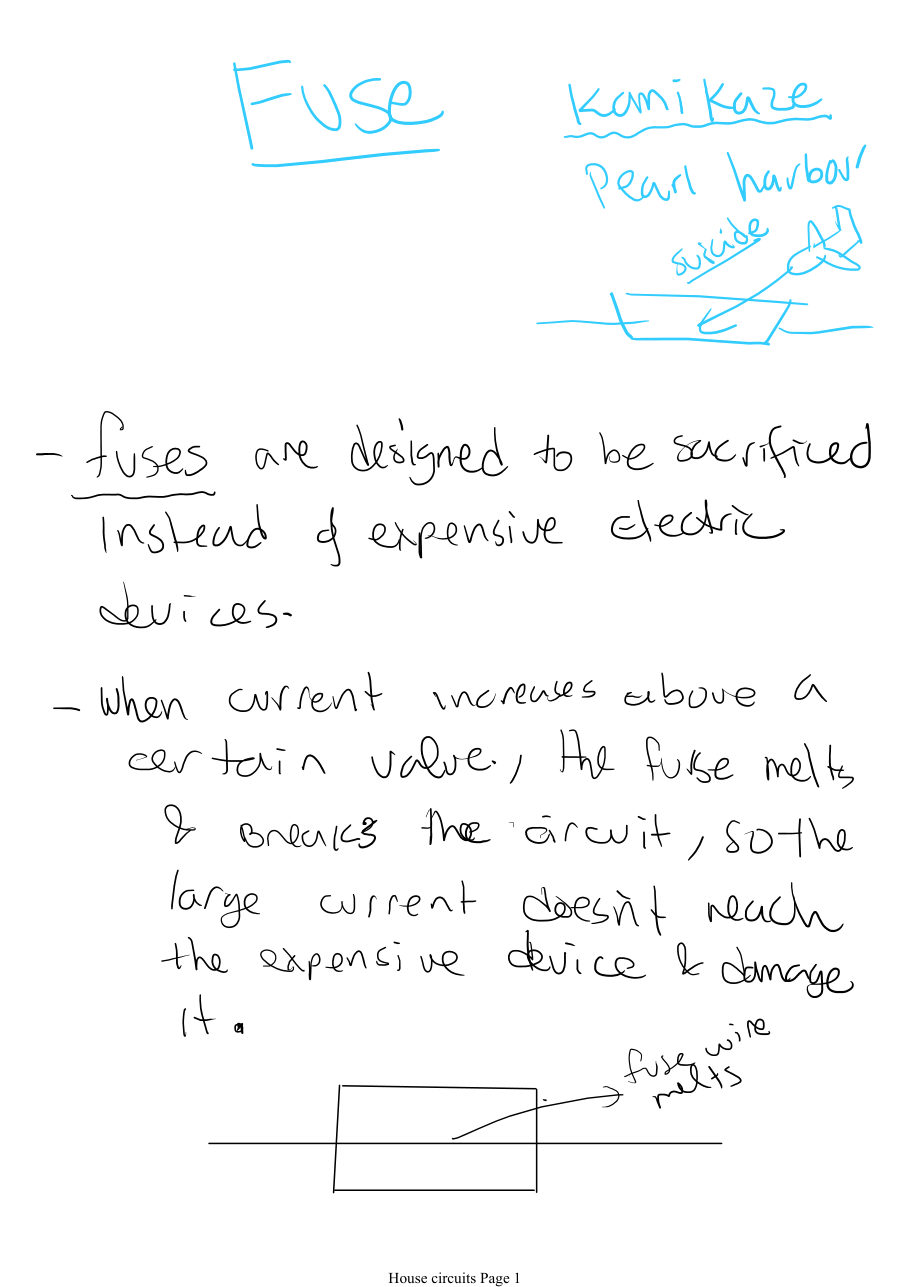 Fuse
Kamikaze
Pearl harbour
suicide
- fuses are designed to be sacrificed
Instead of expensive electric
devices.
- When current increases above a
certain value, the fuse melts
& Breaks the circuit, so the
large current doesn't reach
the expensive device & damage
it.
fuse wire
melts
House circuits Page 1